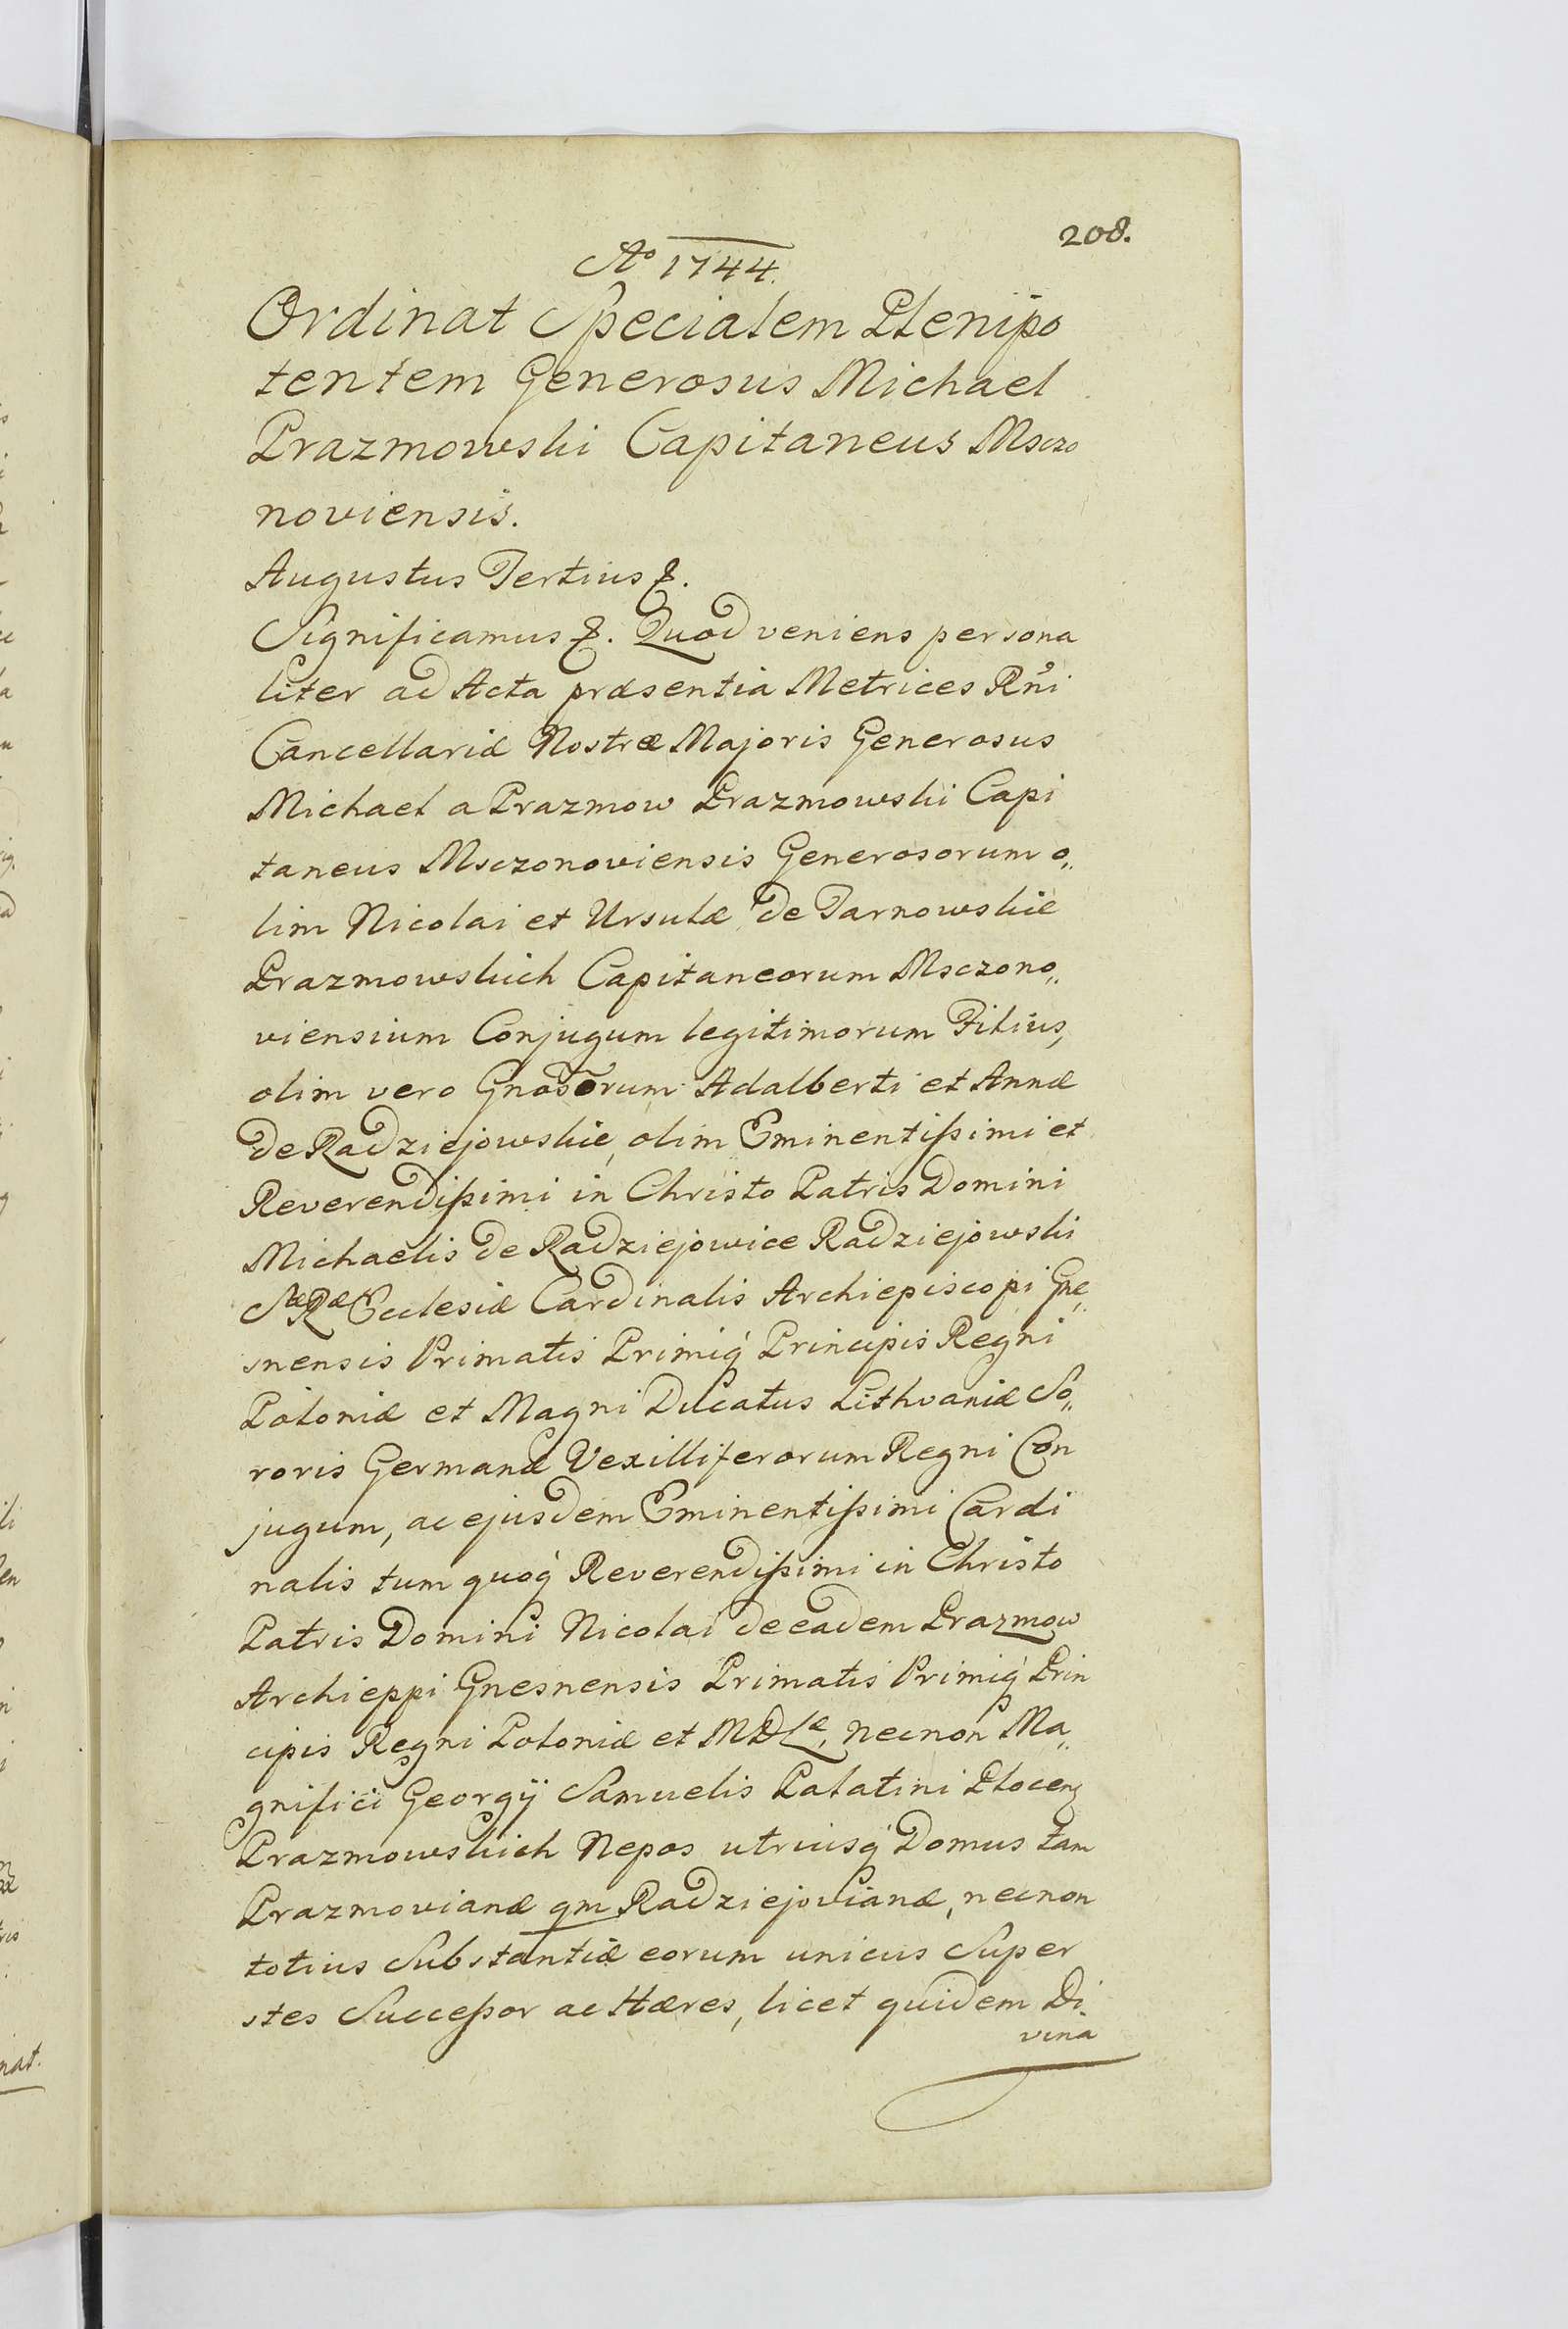 208.
Ao 1744.
Ordinat Specialem Plenipo
tentem Generosus Michael
Prazmowski Capitaneus Msczo
noviensis.
Augustus Tertius &.
Significamus &. Quod veniens persona
liter ad Acta præsentia Metrices Rni
Cancellariæ Nostræ Majoris Generosus
Michael a Prazmow Prazmowski Capi
taneus Msczonoviensis Generosorum o„
lim Nicolai et Ursulæ de Tarnowskie
Prazmowskich Capitaneorum Msczono„
viensium Conjugum legitimorum Filius,
olim vero Gnosorum Adalberti et Annæ
de Radziejowskie, olim Eminentissimi et
Reverendissimi in Christo Patris Domini
Michaelis de Radziejowice Radziejowski
Sæ Ræ Ecclesiæ Cardinalis Archiepiscopi Gne„
snensis Primatis Primiq́ Principis Regni
Poloniæ et Magni Ducatus Lithvaniæ So„
roris Germanæ Vexilliferorum Regni Con
jugum, ac ejusdem Eminentissimi Cardi
nalis tum quoq́ Reverendissimi in Christo
Patris Domini Nicolai de eadem Prazmow
Archieppi Gnesnensis Primatis Primiq́ Prin
cipis Regni Poloniæ et MDLæ, necnon Ma„
gnifici Georgÿ Samuelis Palatini Plocens
Prazmowskich Nepos utriusq́ Domus tam
Prazmovianæ qm Radziejovianæ, necnon
totius Substantiæ eorum unicus Super
stes Successor ac Hæres, licet quidem Di„
vina